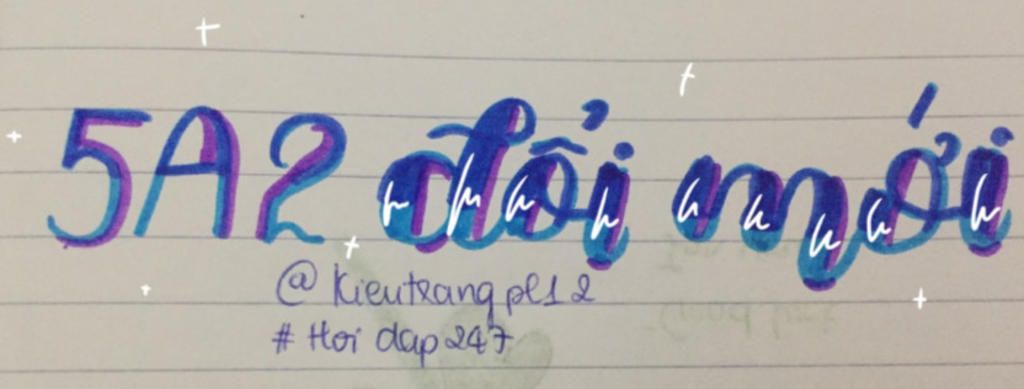 5A2 đổi mới
@kieutrangpl12
#Hoi dap 247